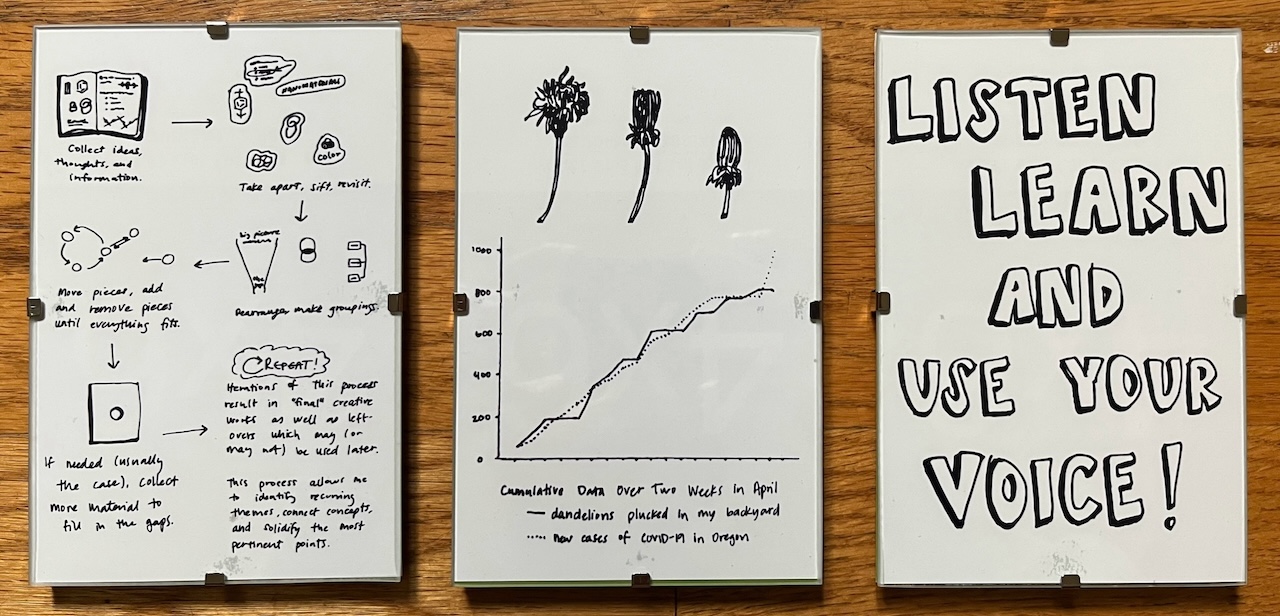 Collect ideas,
thoughts, and
information.
NANOMATERIAL
color
Take apart, sift, revisit.
big picture
Rearrange, make groupings.
Move pieces, add
and remove pieces
until everything fits.
If needed (usually
the case), collect
more material to
fill in the gaps.
REPEAT!
Iterations of this process
result in "final" creative
works as well as left-
overs which may (or
may not) be used later.
This process allows me
to identify recurring
themes, connect concepts,
and solidify the most
pertinent points.
1000
800
600
400
200
0
Cumulative Data Over Two Weeks in April
dandelions plucked in my backyard
new cases of COVID-19 in Oregon
LISTEN
LEARN
AND
USE YOUR
VOICE!